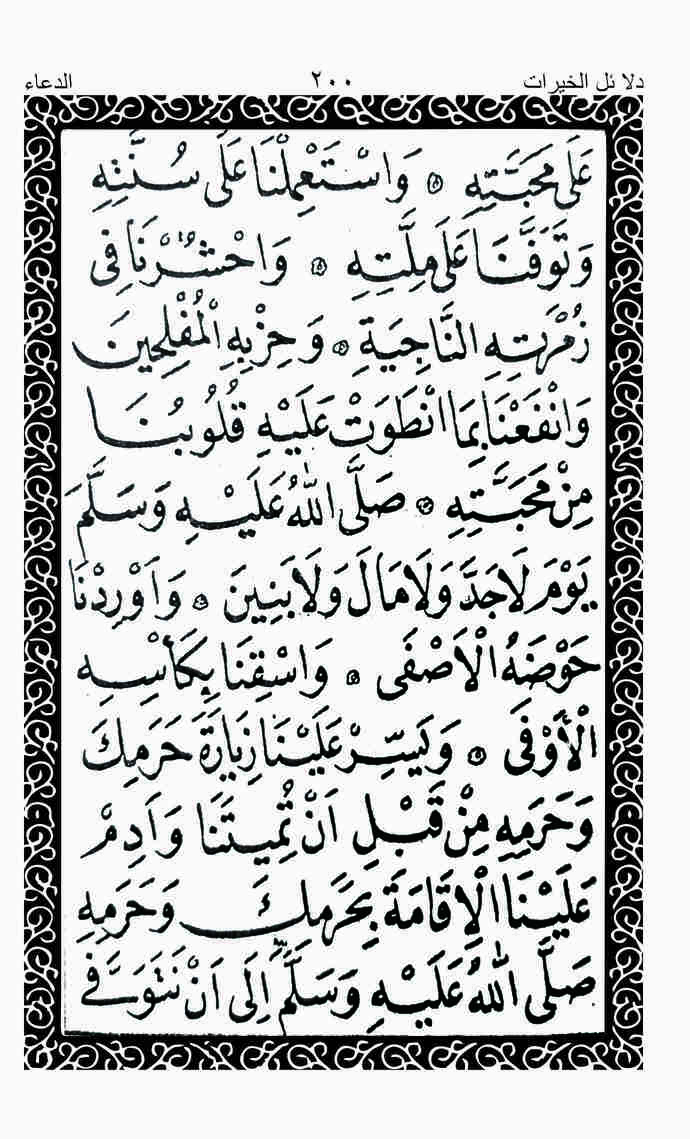 دلائل الخيرات ٢٠٠ الدعاء
عَلَى مَحَبَّتِهِ ۞ وَاسْتَعْمِلْنَا عَلَى سُنَّتِهِ
وَتَوَفَّنَا عَلَى مِلَّتِهِ ۞ وَاحْشُرْنَا فِي
زُمْرَتِهِ النَّاجِيَةِ ۞ وَحِزْبِهِ الْمُفْلِحِينَ
وَانْفَعْنَا بِمَا انْطَوَتْ عَلَيْهِ قُلُوبُنَا
مِنْ مَحَبَّتِهِ ۞ صَلَّى اللهُ عَلَيْهِ وَسَلَّمَ
يَوْمَ لَا جَدَّ وَلَا مَالَ وَلَا بَنِينَ ۞ وَاَوْرِدْنَا
حَوْضَهُ الْاَصْفَى ۞ وَاسْقِنَا بِكَأْسِهِ
الْأَوْفَى ۞ وَيَسِّرْ عَلَيْنَا زِيَارَةَ حَرَمِكَ
وَحَرَمِهِ مِنْ قَبْلِ اَنْ تُمِيتَنَا وَاَدِمْ
عَلَيْنَا الْاِقَامَةَ بِحَرَمِكَ وَحَرَمِهِ
صَلَّى اللهُ عَلَيْهِ وَسَلَّمَ اِلَى اَنْ نَتَوَفَّى